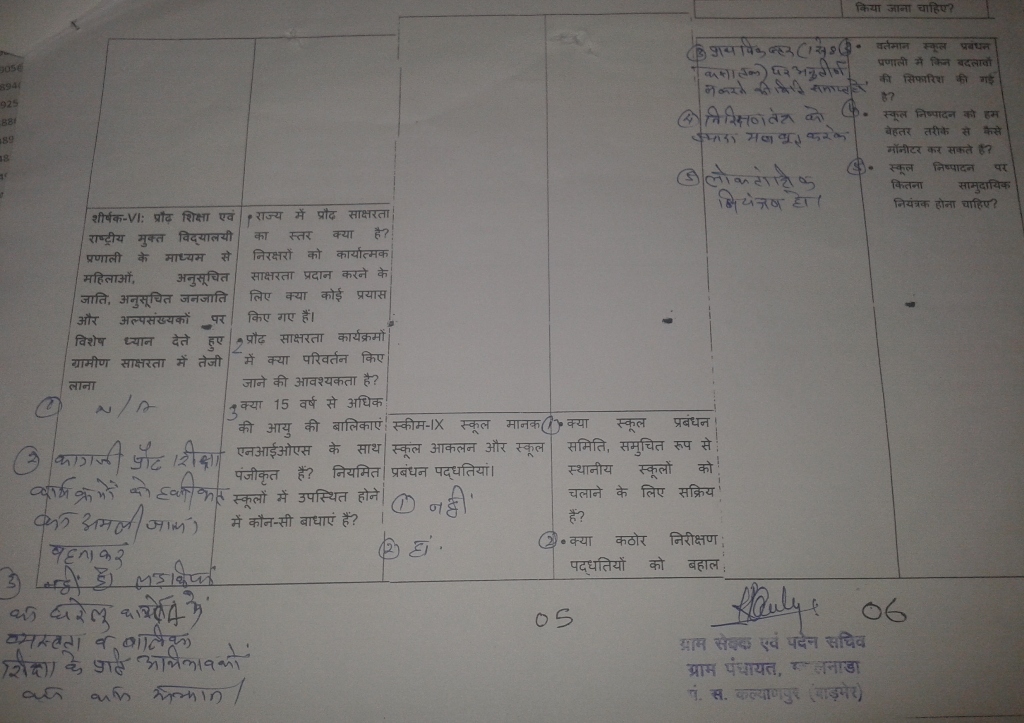 किया जाना चाहिए?
शीर्षक-VI: प्रौढ़ शिक्षा एवं
राष्ट्रीय मुक्त विद्यालयी
प्रणाली के माध्यम से
महिलाओं, अनुसूचित
जाति, अनुसूचित जनजाति
और अल्पसंख्यकों पर
विशेष ध्यान देते हुए
ग्रामीण साक्षरता में तेजी
लाना
① N/A
② कागजी प्रौढ शिक्षा
कार्यक्रमों को हकीकत
का अमली जामा
पहनाकर
③ नहीं है। लडकियों
का घरेलु कार्यो में
व्यस्तता व बालिका
शिक्षा के प्रति अभिभावकों
का कम रूझान।
1 राज्य में प्रौढ़ साक्षरता
का स्तर क्या है?
निरक्षरों को कार्यात्मक
साक्षरता प्रदान करने के
लिए क्या कोई प्रयास
किए गए हैं।
2 प्रौढ़ साक्षरता कार्यक्रमों
में क्या परिवर्तन किए
जाने की आवश्यकता है?
3 क्या 15 वर्ष से अधिक
की आयु की बालिकाएं
एनआईओएस के साथ
पंजीकृत हैं? नियमित
स्कूलों में उपस्थित होने
में कौन-सी बाधाएं हैं?
स्कीम-IX स्कूल मानक
स्कूल आकलन और स्कूल
प्रबंधन पद्धतियां।
① नहीं
② हां.
① • क्या स्कूल प्रबंधन
समिति, समुचित रूप से
स्थानीय स्कूलों को
चलाने के लिए सक्रिय
हैं?
② • क्या कठोर निरीक्षण
पद्धतियों को बहाल
③
④ निरिक्षण तंत्र को
मजबूत करके
⑤ लोकतांत्रिक
नियंत्रण हो।
③ • वर्तमान स्कूल प्रबंधन
प्रणाली में किन बदलावों
की सिफारिश की गई
है?
④ • स्कूल निष्पादन को हम
बेहतर तरीके से कैसे
मॉनीटर कर सकते हैं?
⑤ • स्कूल निष्पादन पर
कितना सामुदायिक
नियंत्रक होना चाहिए?
05
06
ग्राम सेवक एवं पदेन सचिव
ग्राम पंचायत,
पं. स. कल्याणपुर (बाड़मेर)